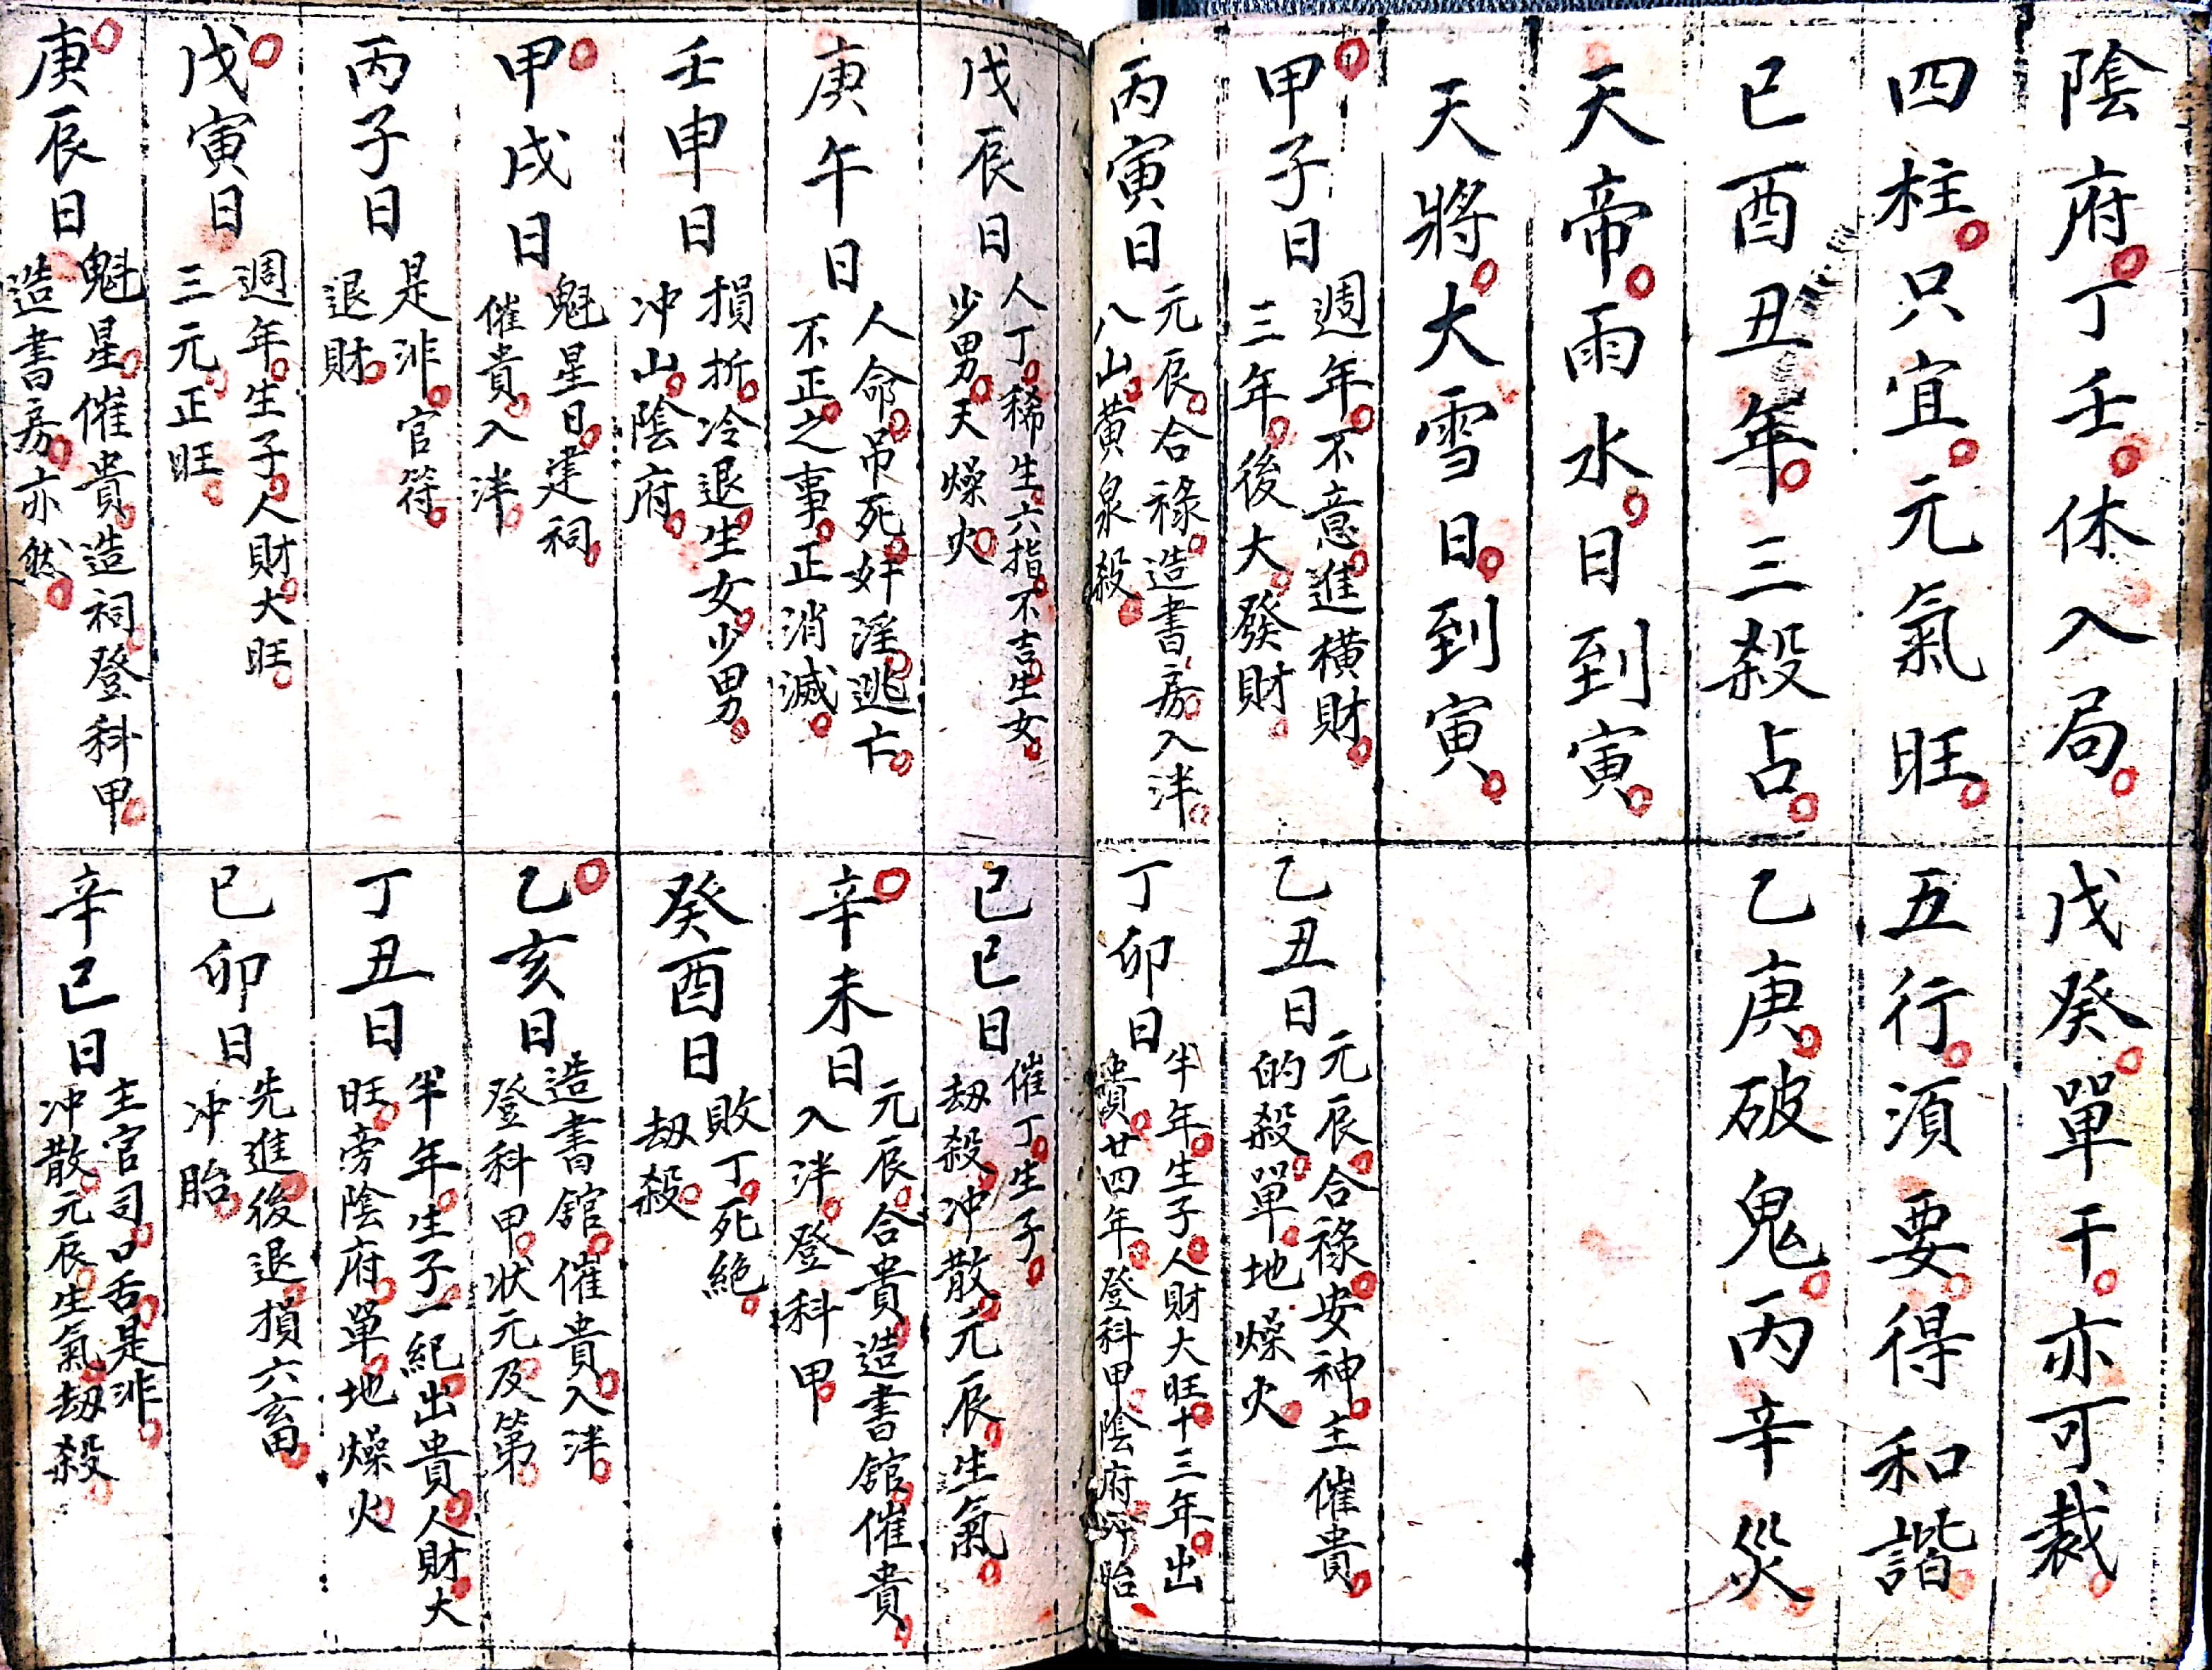 陰府丁壬休入局
戊癸單干亦可裁
四柱只宜元氣旺
五行須要得和諧
已酉丑年三殺占
乙庚破鬼丙辛災
天帝雨水日到寅
天將大雪日到寅
甲子日
週年不意進橫財
三年後大發財
乙丑日
元辰合祿安神主催貴
的殺單地燥火
丙寅日
元辰合祿造書房入泮
八山黃泉殺
丁卯日
半年生子人財大旺十三年出
貴廿四年登科甲陰府
戊辰日
人丁稀生六指不吉生女
少男天燥火
已已日
催丁生子
刼殺冲散元辰生氣
庚午日
人命吊死奸淫逃亡
不正之事正消滅
辛未日
元辰合貴造書舘催貴
入泮登科甲
壬申日
損折冷退生女少男
冲山陰府
癸酉日
敗丁死絕
刼殺
甲戌日
魁星日建祠
催貴入泮
乙亥日
造書舘催貴入泮
登科甲狀元及第
丙子日
是非官符
退財
丁丑日
半年生子一紀出貴人財大
旺旁陰府單地燥火
戊寅日
週年生子人財大旺
三元正旺
已卯日
先進後退損六畜
冲胎
庚辰日
魁星催貴造祠登科甲
造書房亦然
辛已日
主官司口舌是非
冲散元辰生氣刼殺